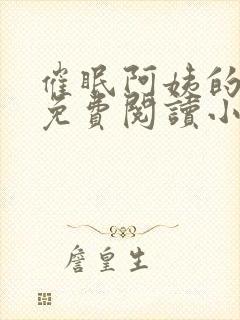 催眠阿姨的
免費閱讀小
詹皇生